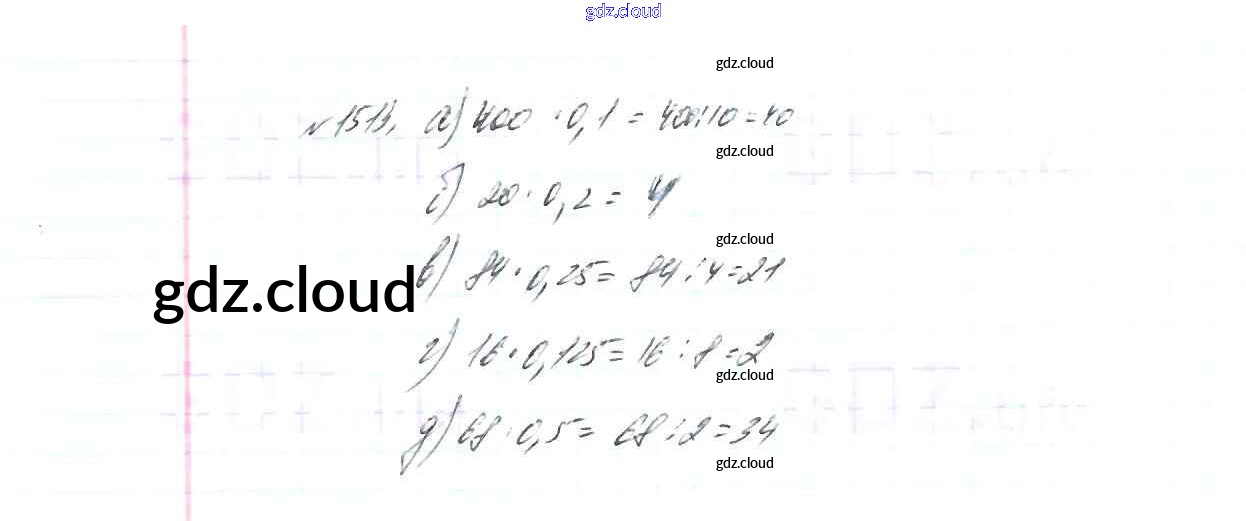 gdz.cloud
gdz.cloud
№1513. а) 400 · 0,1 = 400:10=40
gdz.cloud
б) 20 · 0,2 = 4
gdz.cloud
в) 84 · 0,25 = 84:4=21
gdz.cloud
г) 16 · 0,125 = 16:8=2
gdz.cloud
д) 68 · 0,5 = 68:2=34
gdz.cloud